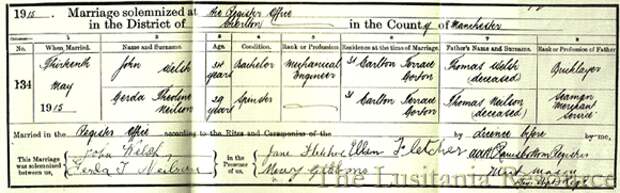 1915. Marriage solemnized at the Register Office
in the District of Chorlton in the County of Manchester
1 2 3 4 5 6 7 8
No. When Married. Name and Surname. Age. Condition. Rank or Profession. Residence at the time of Marriage. Father's Name and Surname. Rank or Profession of Father
134 Thirteenth May 1915 John Welsh 34 years Bachelor Mechanical Engineer 31 Carlton Terrace Gorton Thomas Welsh (deceased) Bricklayer
Gerda Theoline Neilson 29 years Spinster 31 Carlton Terrace Gorton Thomas Neilson (deceased) Seaman Merchant Service
Married in the Register Office according to the Rites and Ceremonies of the by licence before by me,
This Marriage was solemnized between us, John Welsh in the Presence of us, Jane Fletcher Ellen Fletcher Registrar
Gerda T Neilsen Mary Gibbons
The Lusitania Resource